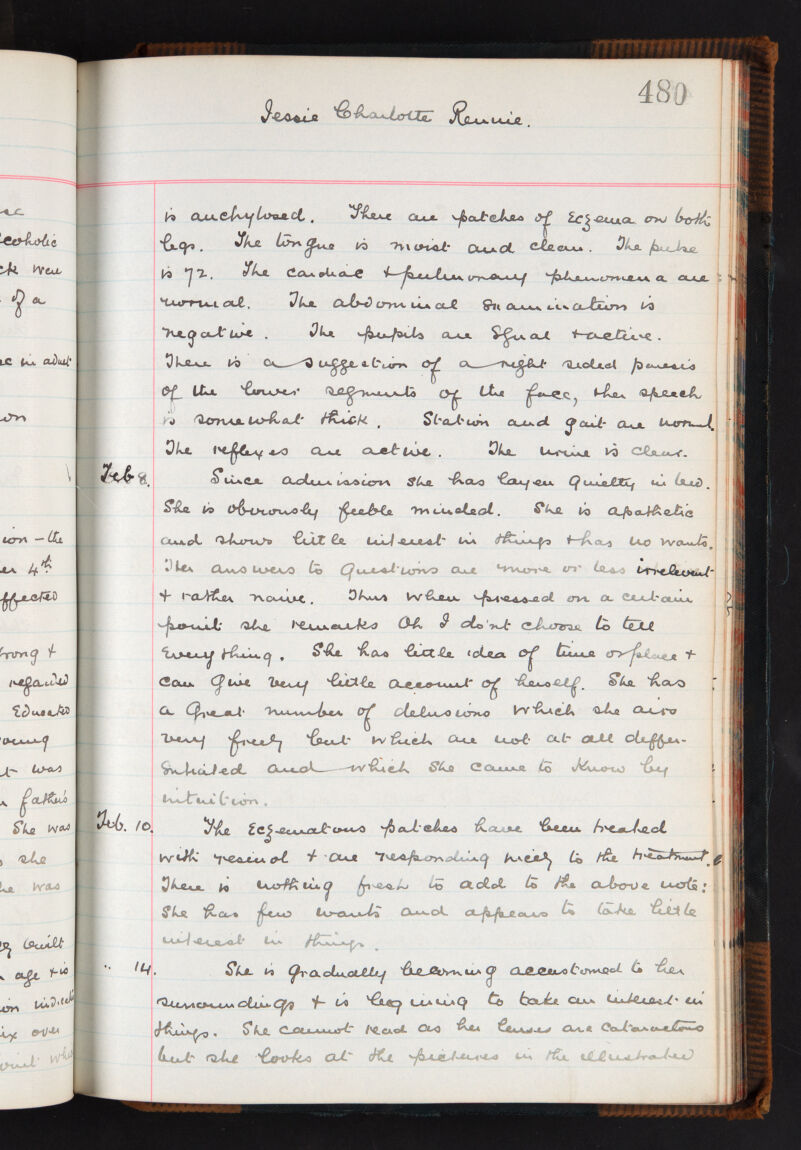 480
Jessie Charlotte Rennie.
is anchylosed. There are patches of Eczema on both
legs. The tongue is moist and clean. The pulse
is 72. The cardiac & pulmonary phenomena are
normal. The abdominal examination is
negative. The pupils are Equal & active.
There is a suggestion of a right sided paresis
of the lower segments of the face, & her speech
is somewhat thick. Station and gait are normal.
The reflexes are active. The urine is clear.
Feb 8. Since admission she has layen quietly in bed.
She is obviously feeble minded. She is apathetic
and shows little interest in things & has no wants.
Her answers to Questions are more or less irrelevent
& rather naive. Thus when pressed on a certain
point she remarks Oh I do'nt choose to tell
Every thing. She has little idea of time or place &
can Give very little account of herself. She has
a Great number of delusions which she airs
very freely but which are not at all differ-
entiated and which she came to know by
intuition.
Feb. 10. The Eczematous patches have been treated
with resinol & are responding nicely to the treatment.
There is nothing fresh to add to the above note:
She has few wants and appears to take little
interest in things.
" 14. She is Gradually becoming accustomed to her
surroundings & is begining to take an interest in
things. She cannot read as her lenses are cataractous
but she looks at the pictures in the illustrated
coholic
ck were
of a
in adult
ion - the
4th
ffected
trong &
regarded
Educated
oung
t was
father's
She was
she
he was
built
age & is
ix over